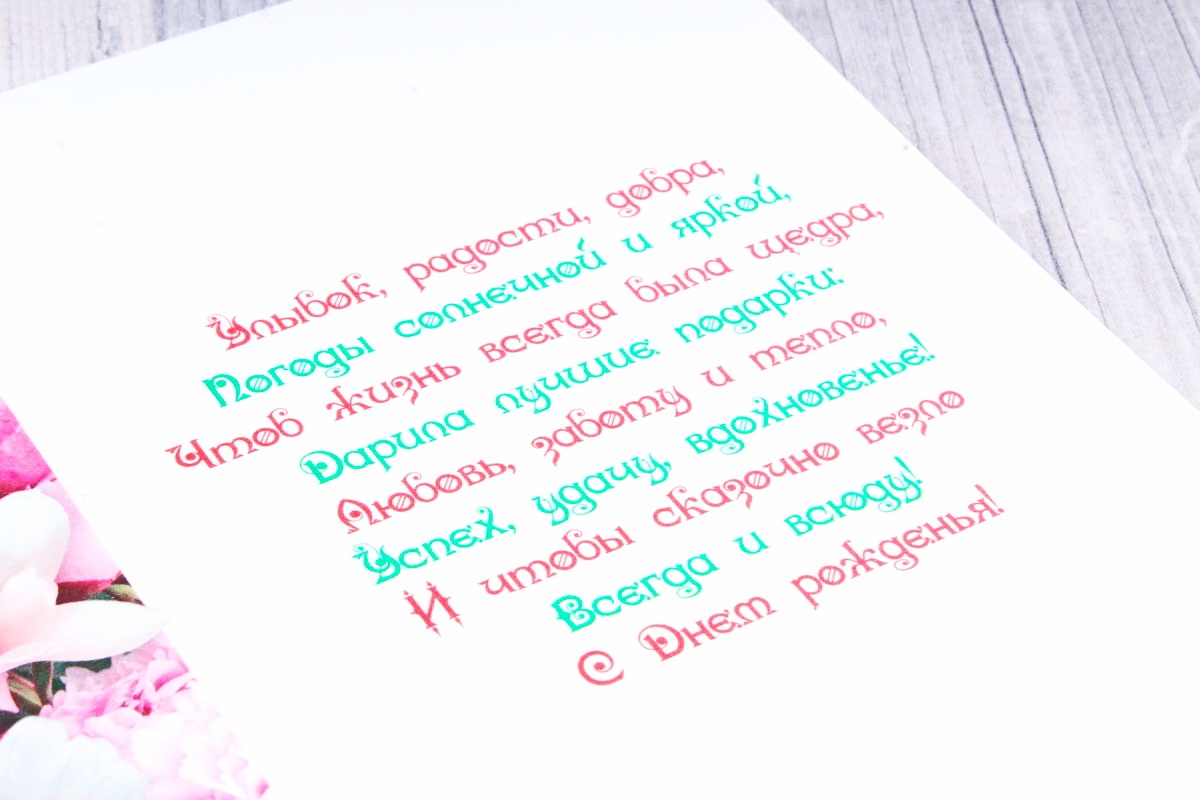 Улыбок, радости, добра,
Погоды солнечной и яркой,
Чтоб жизнь всегда была щедра,
Дарила лучшие подарки:
Любовь, заботу и тепло,
Успех, удачу, вдохновенье!
И чтобы сказочно везло
Всегда и всюду!
С Днем рожденья!